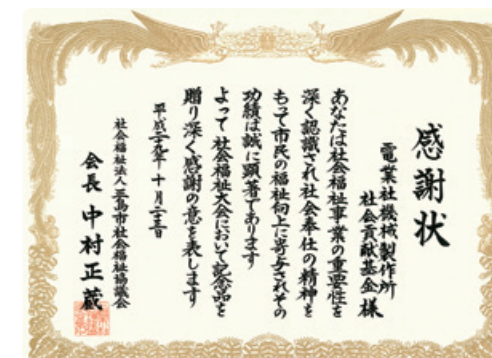 感謝状
電業社機械製作所
社会貢献基金様
あなたは社会福祉事業の重要性を
深く認識され社会奉仕の精神を
もって市民の福祉向上に寄与されその
功績は誠に顕著であります
よって社会福祉大会において記念品を
贈り深く感謝の意を表します
平成二十九年十月二十三日
社会福祉法人三島市社会福祉協議会
会長 中村正蔵